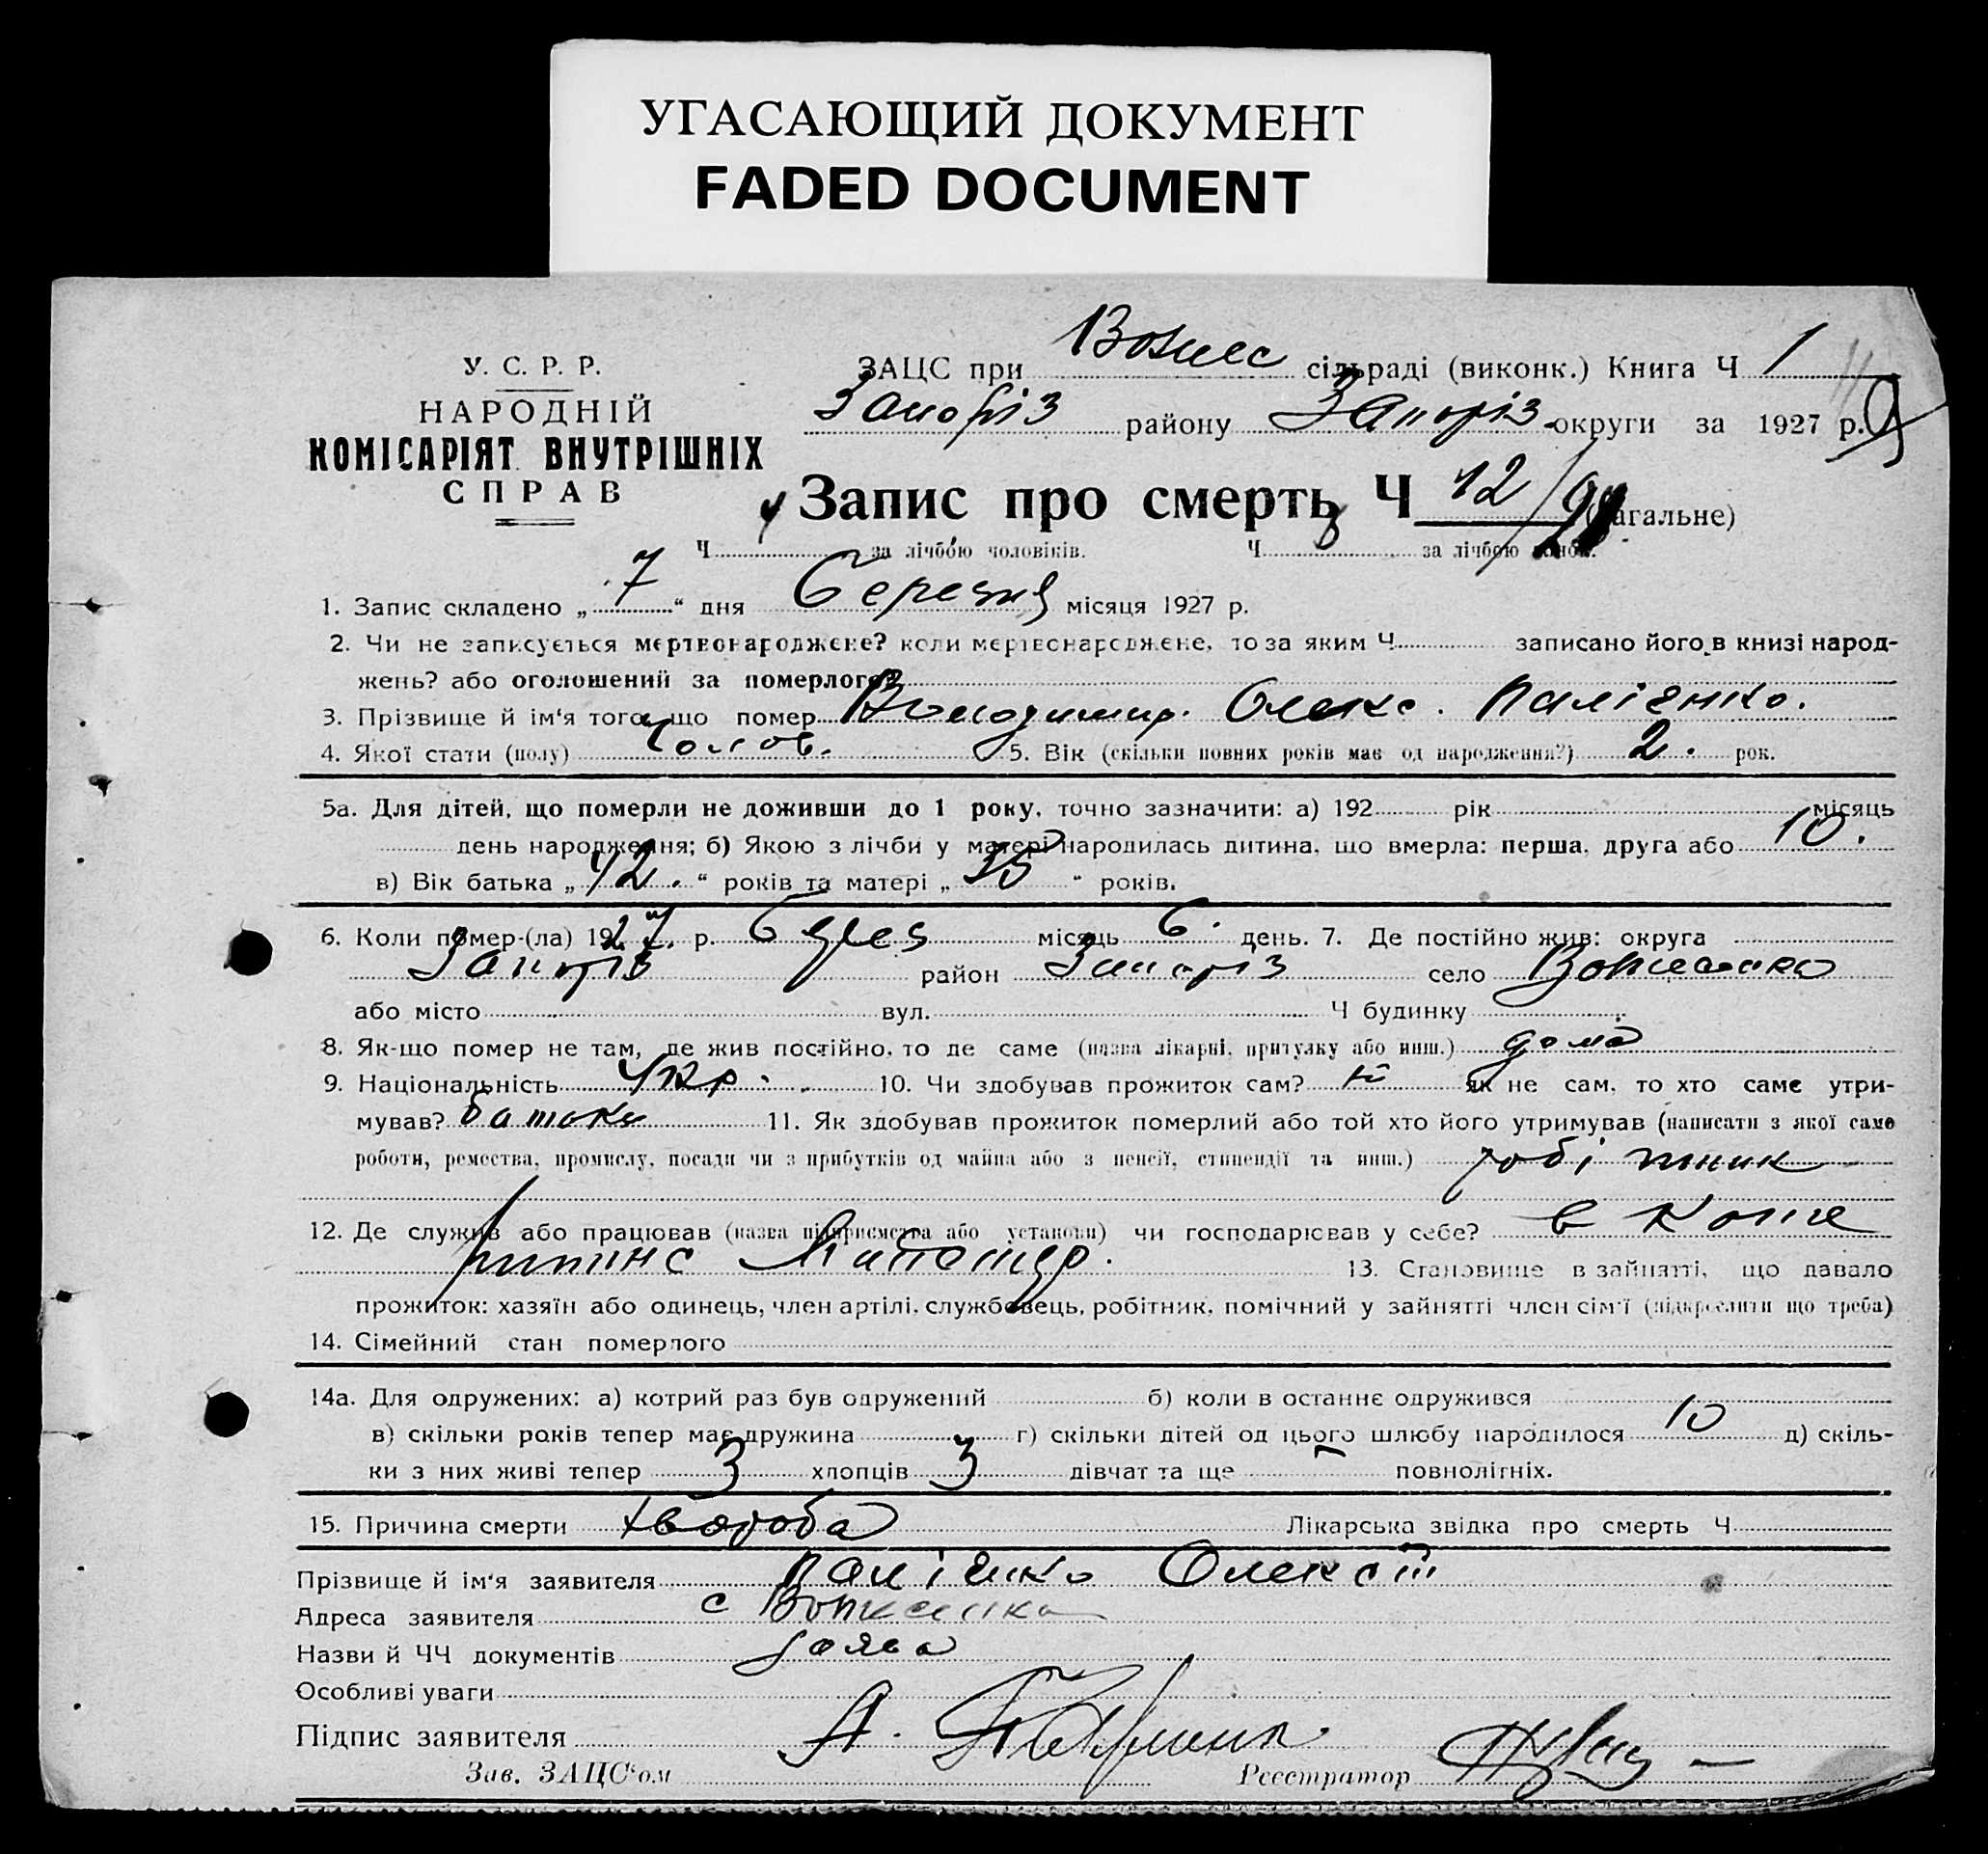 УГАСАЮЩИЙ ДОКУМЕНТ
FADED DOCUMENT
У. С. Р. Р.
НАРОДНІЙ
КОМІСАРІЯТ ВНУТРІШНІХ
СПРАВ
ЗАЦС при Вознес сільраді (виконк.) Книга Ч 1
Запоріз району Запоріз округи за 1927 р. 9
Запис про смерть Ч 12/ (загальне)
Ч за лічбою чоловіків. Ч 8 за лічбою жінок.
1. Запис складено „ 7 “ дня березня місяця 1927 р.
2. Чи не записується мертвонароджене? коли мертвонароджене, то за яким Ч записано його в книзі народ-
жень? або оголошений за померлого?
3. Прізвище й ім'я того, що помер Володимир. Олекс. Палієнко.
4. Якої стати (полу) Чолов. 5. Вік (скільки повних років має од народження?) 2. рок.
5а. Для дітей, що померли не доживши до 1 року, точно зазначити: а) 192 рік місяць
день народження; б) Якою з лічби у матері народилась дитина, що вмерла: перша, друга або 10.
в) Вік батька „ 42. “ років та матері „ 35 “ років.
6. Коли помер-(ла) 1927. р. місяць 6. день. 7. Де постійно жив: округа
Запоріз район Запоріз село Вознесенка
або місто вул. Ч будинку
8. Як-що помер не там, де жив постійно, то де саме (назва лікарні, притулку або инш.) дома
9. Національність Укр. 10. Чи здобував прожиток сам? ні як не сам, то хто саме утри-
мував? батько 11. Як здобував прожиток померлий або той хто його утримував (написати з якої саме
роботи, ремества, промислу, посади чи з прибутків од майна або з пенсії, стипендії та инш.) робітник
12. Де служив або працював (назва підприємства або установи) чи господарював у себе? в
13. Становище в зайнятті, що давало
прожиток: хазяїн або одинець, член артілі, службовець, робітник, помічний у зайнятті член сім'ї (підкреслити що треба)
14. Сімейний стан померлого
14а. Для одружених: а) котрий раз був одружений б) коли в останнє одружився
в) скільки років тепер має дружина г) скільки дітей од цього шлюбу народилося 10 д) скіль-
ки з них живі тепер 3 хлопців 3 дівчат та ще — повнолітніх.
15. Причина смерти хвороба Лікарська звідка про смерть Ч
Прізвище й ім'я заявителя Палієнко Олексій
Адреса заявителя с Вознесенка
Назви й ЧЧ документів заява
Особливі уваги
Підпис заявителя А.
Зав. ЗАЦС'ом Реєстратор